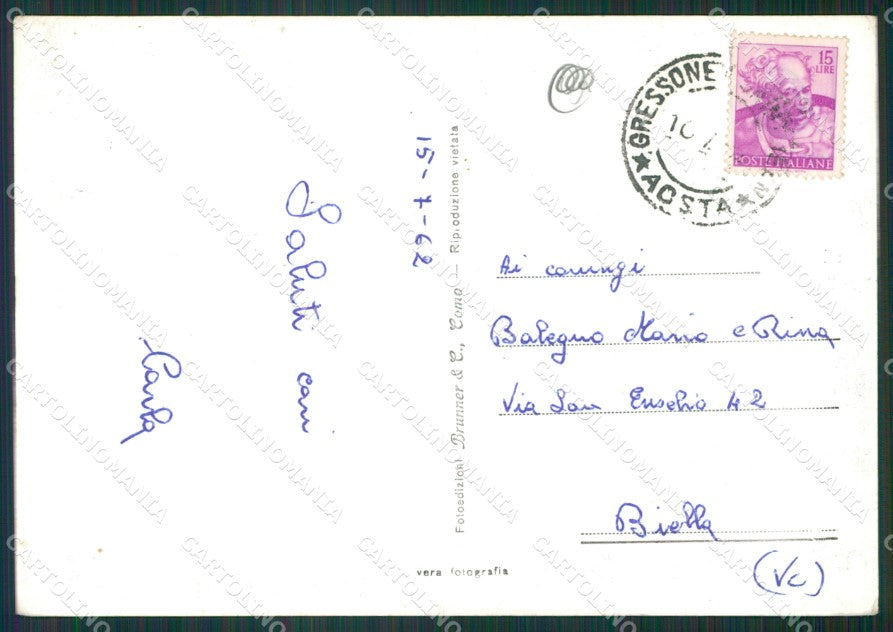 15-7-62
Saluti cari
Carla
Fotoedizioni Brunner & C., Como — Riproduzione vietata
vera fotografia
GRESSONE
AOSTA
15
LIRE
POSTE ITALIANE
Ai coniugi
Balegno Mario e Rina
Via San Eusebio 42
Biella
(Vc)
CARTOLINOMANIA